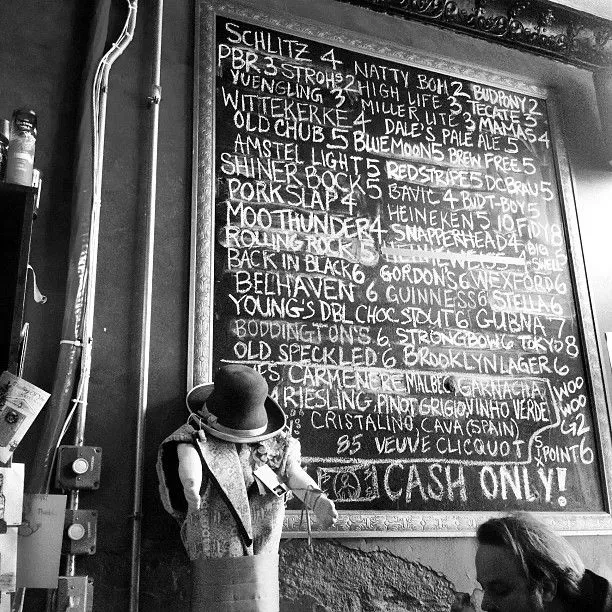 SCHLITZ 4 NATTY BOH 2 BUDPONY 2
PBR 3 STROHS 2 HIGH LIFE 3 TECATE 3
YUENGLING 3 MILLER LITE 3 MAMAS 4
WITTEKERKE 4 DALE'S PALE ALE 5
OLD CHUB 5 BLUEMOON 5 BREW FREE 5
AMSTEL LIGHT 5 REDSTRIPE 5 DC BRAU 5
SHINER BOCK 5 BAVIC 4 BUDT-BOY 5
PORKSLAP 4 HEINEKEN 5 10 FIDY 8
MOOTHUNDER 4 SNAPPERHEAD 4 BIG
ROLLING ROCK 5 SHELL 5
BACK IN BLACK 6 GORDON'S 6 WEXFORD 6
BELHAVEN 6 GUINNESS 6 STELLA 6
YOUNG'S DBL CHOC STOUT 6 GUBNA 7
BODDINGTON'S 6 STRONGBOW 6 TOKYO 8
OLD SPECKLED 6 BROOKLYN LAGER 6
CARMENERE MALBEC, GARNACHA,
RIESLING, PINOT GRIGIO, VINHO VERDE,
CRISTALINO, CAVA (SPAIN)
85 VEUVE CLICQUOT
WOO
WOO
G2
SIXPOINT 6
CASH ONLY!